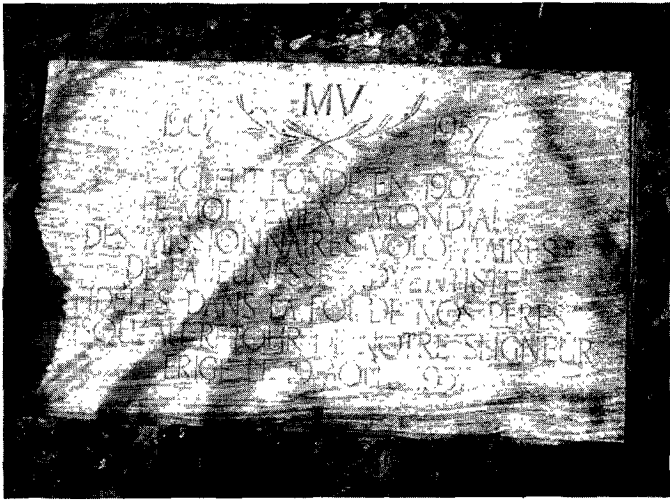 MV
1907 1957
ICI FUT FONDE EN 1907
LE MOUVEMENT MONDIAL
DES MISSIONNAIRES VOLONTAIRES
DE LA JEUNESSE ADVENTISTE
FIDELES DANS LA FOI DE NOS PERES
POUR NOTRE SEIGNEUR
ERIGE LE AOUT